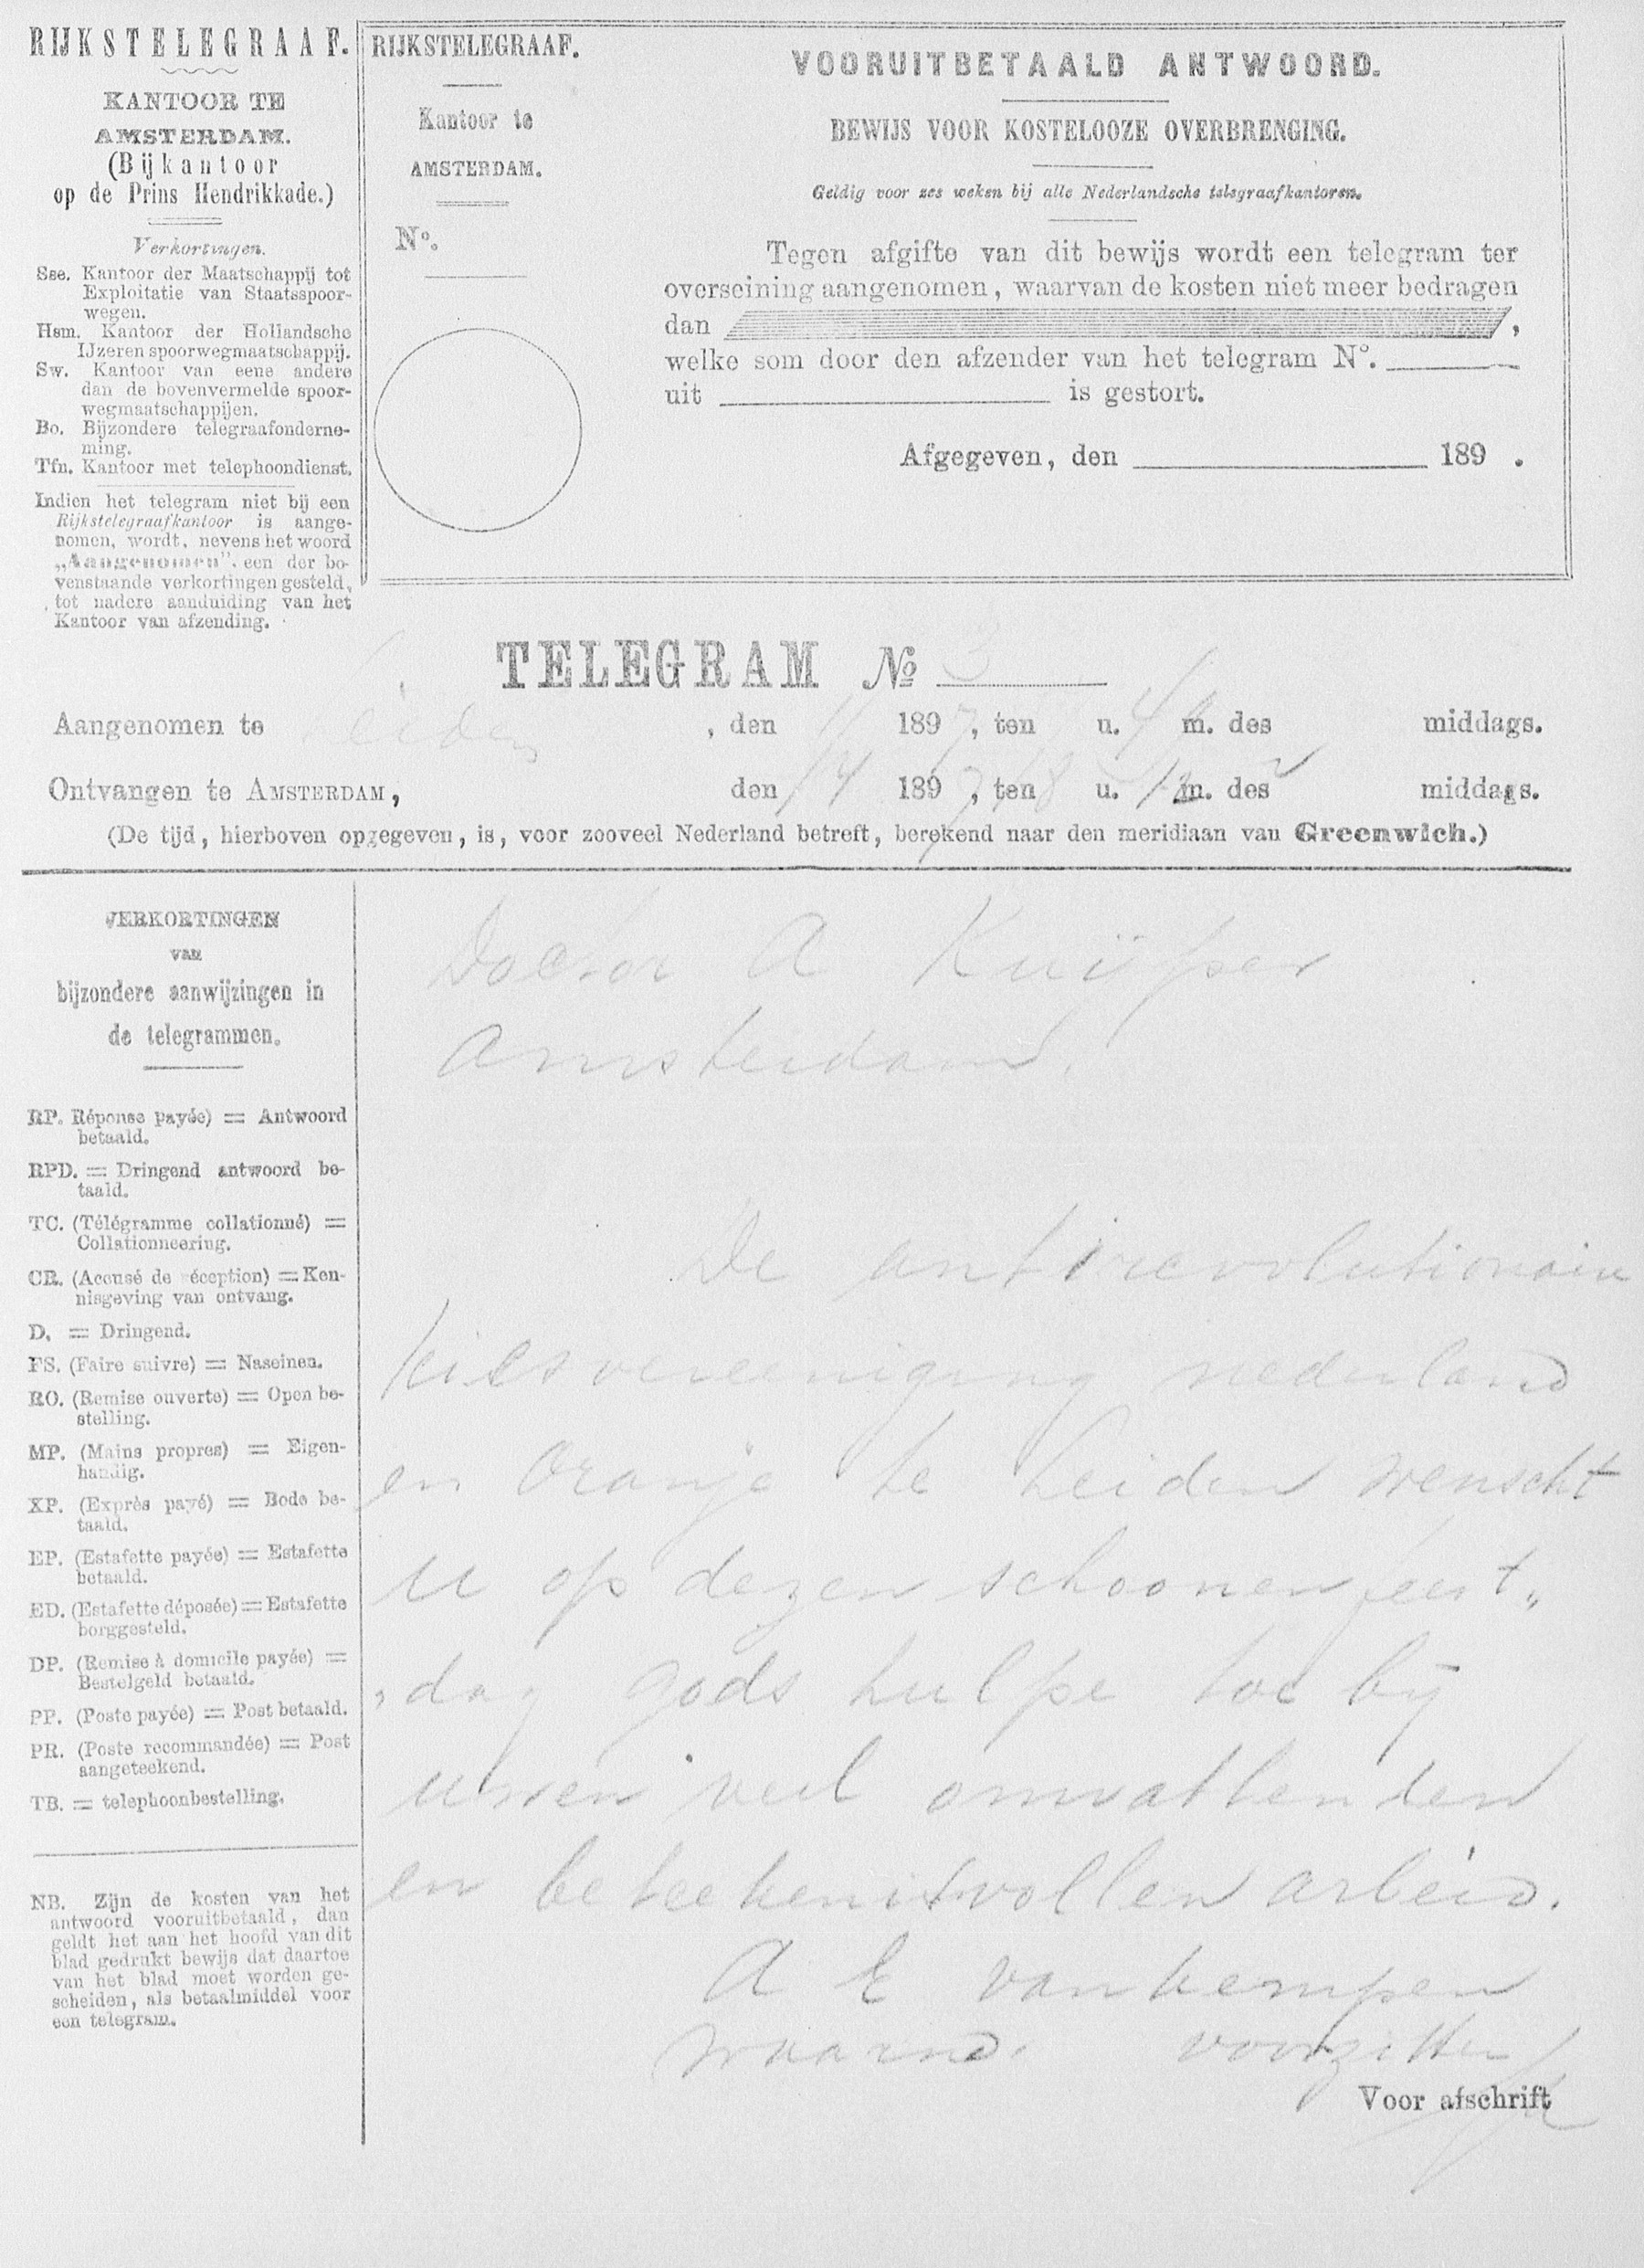 RIJKSTELEGRAAF.
KANTOOR TE
AMSTERDAM.
(Bijkantoor
op de Prins Hendrikkade.)
Verkortingen.
Sse. Kantoor der Maatschappij tot
Exploitatie van Staatsspoor-
wegen.
Hsm. Kantoor der Hollandsche
IJzeren spoorwegmaatschappij.
Sw. Kantoor van eene andere
dan de bovenvermelde spoor-
wegmaatschappijen.
Bo. Bijzondere telegraafonderne-
ming.
Tfn. Kantoor met telephoondienst.
Indien het telegram niet bij een
Rijkstelegraafkantoor is aange-
nomen, wordt, nevens het woord
„Aangenomen", een der bo-
venstaande verkortingen gesteld,
tot nadere aanduiding van het
Kantoor van afzending.
RIJKSTELEGRAAF.
Kantoor te
AMSTERDAM.
No.
VOORUITBETAALD ANTWOORD.
BEWIJS VOOR KOSTELOOZE OVERBRENGING.
Geldig voor zes weken bij alle Nederlandsche telegraafkantoren.
Tegen afgifte van dit bewijs wordt een telegram ter
overseining aangenomen, waarvan de kosten niet meer bedragen
dan ,
welke som door den afzender van het telegram No.
uit is gestort.
Afgegeven, den 189 .
TELEGRAM No 3
Aangenomen te Leiden, den 1/4 1897, ten u. 4 m. des middags.
Ontvangen te AMSTERDAM, den 1/4 1897, ten 8 u. m. des middags.
(De tijd, hierboven opgegeven, is, voor zooveel Nederland betreft, berekend naar den meridiaan van Greenwich.)
VERKORTINGEN
van
bijzondere aanwijzingen in
de telegrammen.
RP. Réponse payée) = Antwoord
betaald.
RPD. = Dringend antwoord be-
taald.
TC. (Télégramme collationné) =
Collationneering.
CR. (Accusé de réception) = Ken-
nisgeving van ontvang.
D. = Dringend.
FS. (Faire suivre) = Naseinen.
RO. (Remise ouverte) = Open be-
stelling.
MP. (Mains propres) = Eigen-
handig.
XP. (Exprès payé) = Bode be-
taald.
EP. (Estafette payée) = Estafette
betaald.
ED. (Estafette déposée) = Estafette
borggesteld.
DP. (Remise à domicile payée) =
Bestelgeld betaald.
PP. (Poste payée) = Post betaald.
PR. (Poste recommandée) = Post
aangeteekend.
TB. = telephoonbestelling.
NB. Zijn de kosten van het
antwoord vooruitbetaald, dan
geldt het aan het hoofd van dit
blad gedrukt bewijs dat daartoe
van het blad moet worden ge-
scheiden, als betaalmiddel voor
een telegram.
Doctor A Kuijper
Amsterdam.
De antirevolutionaire
kiesvereeniging nederland
en Oranje te Leiden wenscht
u op dezen schoonen feest„
„dag gods hulpe toe bij
uwen veel omvattenden
en beteekenisvollen arbeid.
A E van kempen
waarnd. voorzitter
Voor afschrift